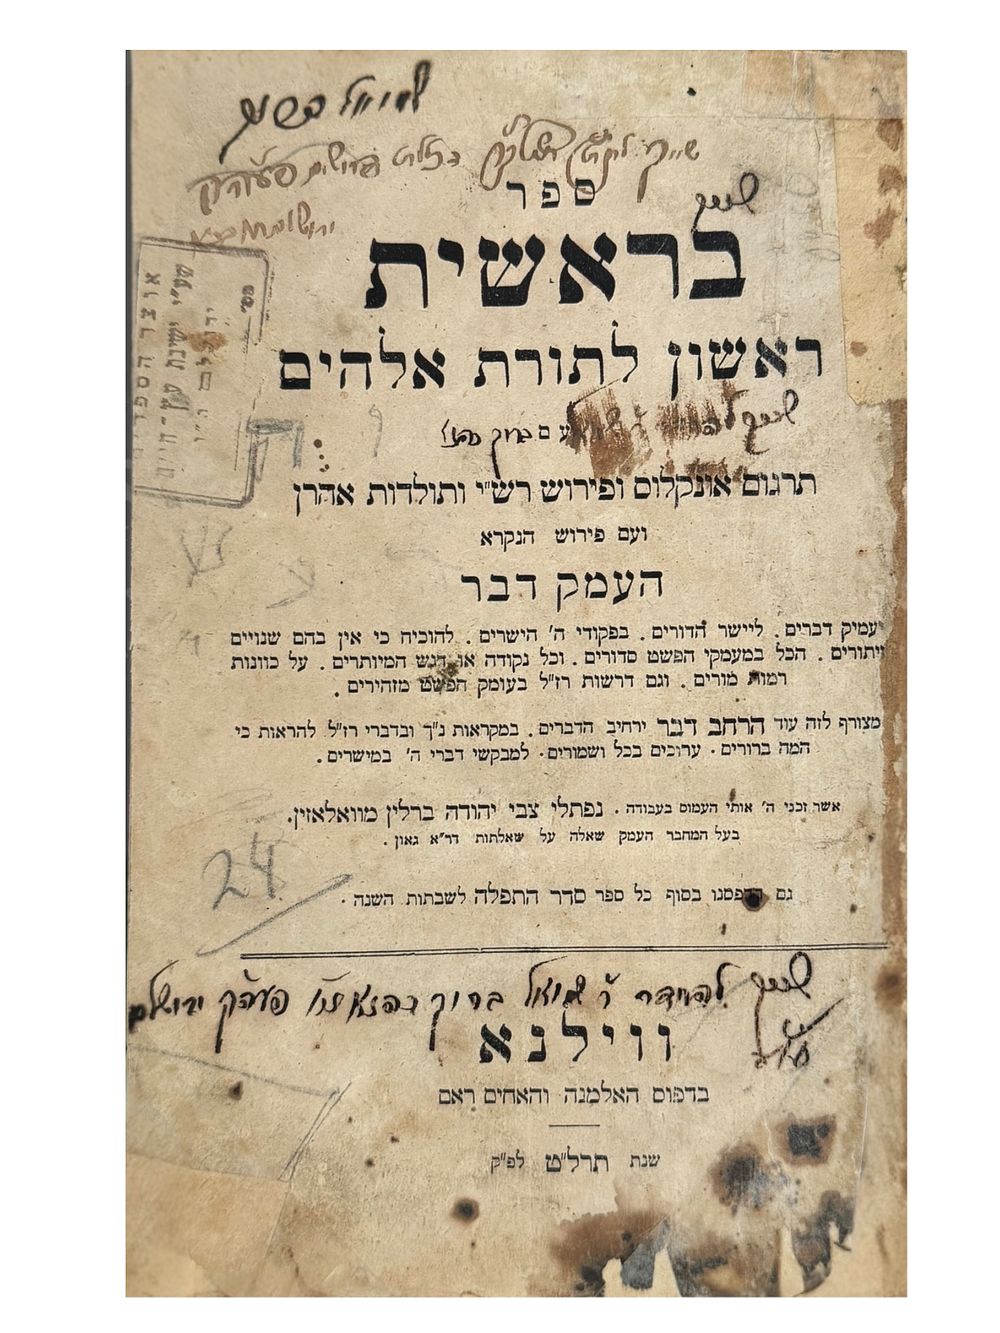 ספר
שייך
בראשית
ראשון לתורת אלהים
שייך
עם
תרגום אונקלוס ופירוש רש"י ותולדות אהרן
ועם פירוש הנקרא
העמק דבר
יעמיק דברים. ליישר הדורים. בפקודי ה' הישרים. להוכיח כי אין בהם שנויים
ויתורים. הכל במעמקי הפשט סדורים. וכל נקודה או דגש המיותרים. על כוונות
רמות מורים. וגם דרשות רז"ל בעומק הפשט מזהירים.
מצורף לזה עוד הרחב דבר ירחיב הדברים. במקראות נ"ך ובדברי רז"ל להראות כי
המה ברורים. ערוכים בכל ושמורים. למבקשי דברי ה' במישרים.
אשר זכני ה' אותי העמוס בעבודה. נפתלי צבי יהודה ברלין מוואלאזין.
בעל המחבר העמק שאלה על שאלתות דר"א גאון.
24
גם הדפסנו בסוף כל ספר סדר התפלה לשבתות השנה.
שייך
ר' שמואל ברוך פעה"ק ירושלם
ווילנא
בדפוס האלמנה והאחים ראם
שנת תרל"ט לפ"ק
אוצר הספרים
שע"י ישיבת עץ-חיים
ירושלם
מס'